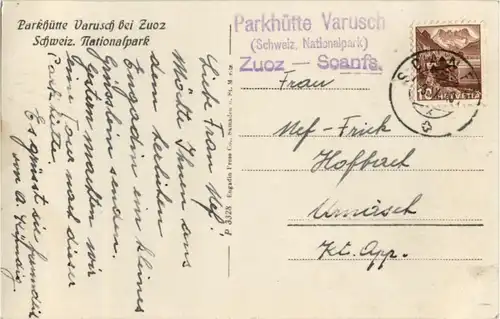 Parkhütte Varusch bei Zuoz
Schweiz. Nationalpark
Liebe Frau Nef!
Möchte Ihnen aus
dem herrlichen
Engadin ein kleines
Grüsslein senden.
Gestern machten wir
eine Tour nach dieser
Parkhütte.
Es grüsst sie freundlich
von A.
d 3328 Engadin Press Co., Samaden u. St. Moritz
Parkhütte Varusch
(Schweiz. Nationalpark)
Zuoz — Scanfs.
10 HELVETIA
Frau
Nef-Frick
Hofbach
Urnäsch
Kt. App.